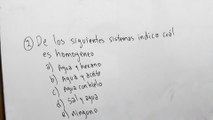 ② De los siguientes sistemas indica cuál
es homogéneo
a) Agua y hexano
b) Agua y aceite
c) Agua con hielo
d) Sal y agua
e) ninguno